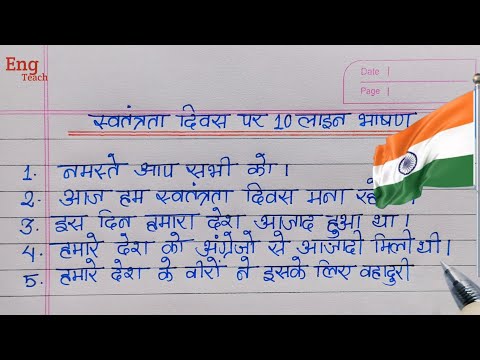 Eng
Teach
Date
Page
स्वतंत्रता दिवस पर 10 लाइन भाषण
1. नमस्ते आप सभी को।
2. आज हम स्वतंत्रता दिवस मना
3. इस दिन हमारा देश आजाद हुआ था।
4. हमारे देश को अंग्रेजो से आजादी मिली थी।
5. हमारे देश के वीरों ने इसके लिए बहादुरी